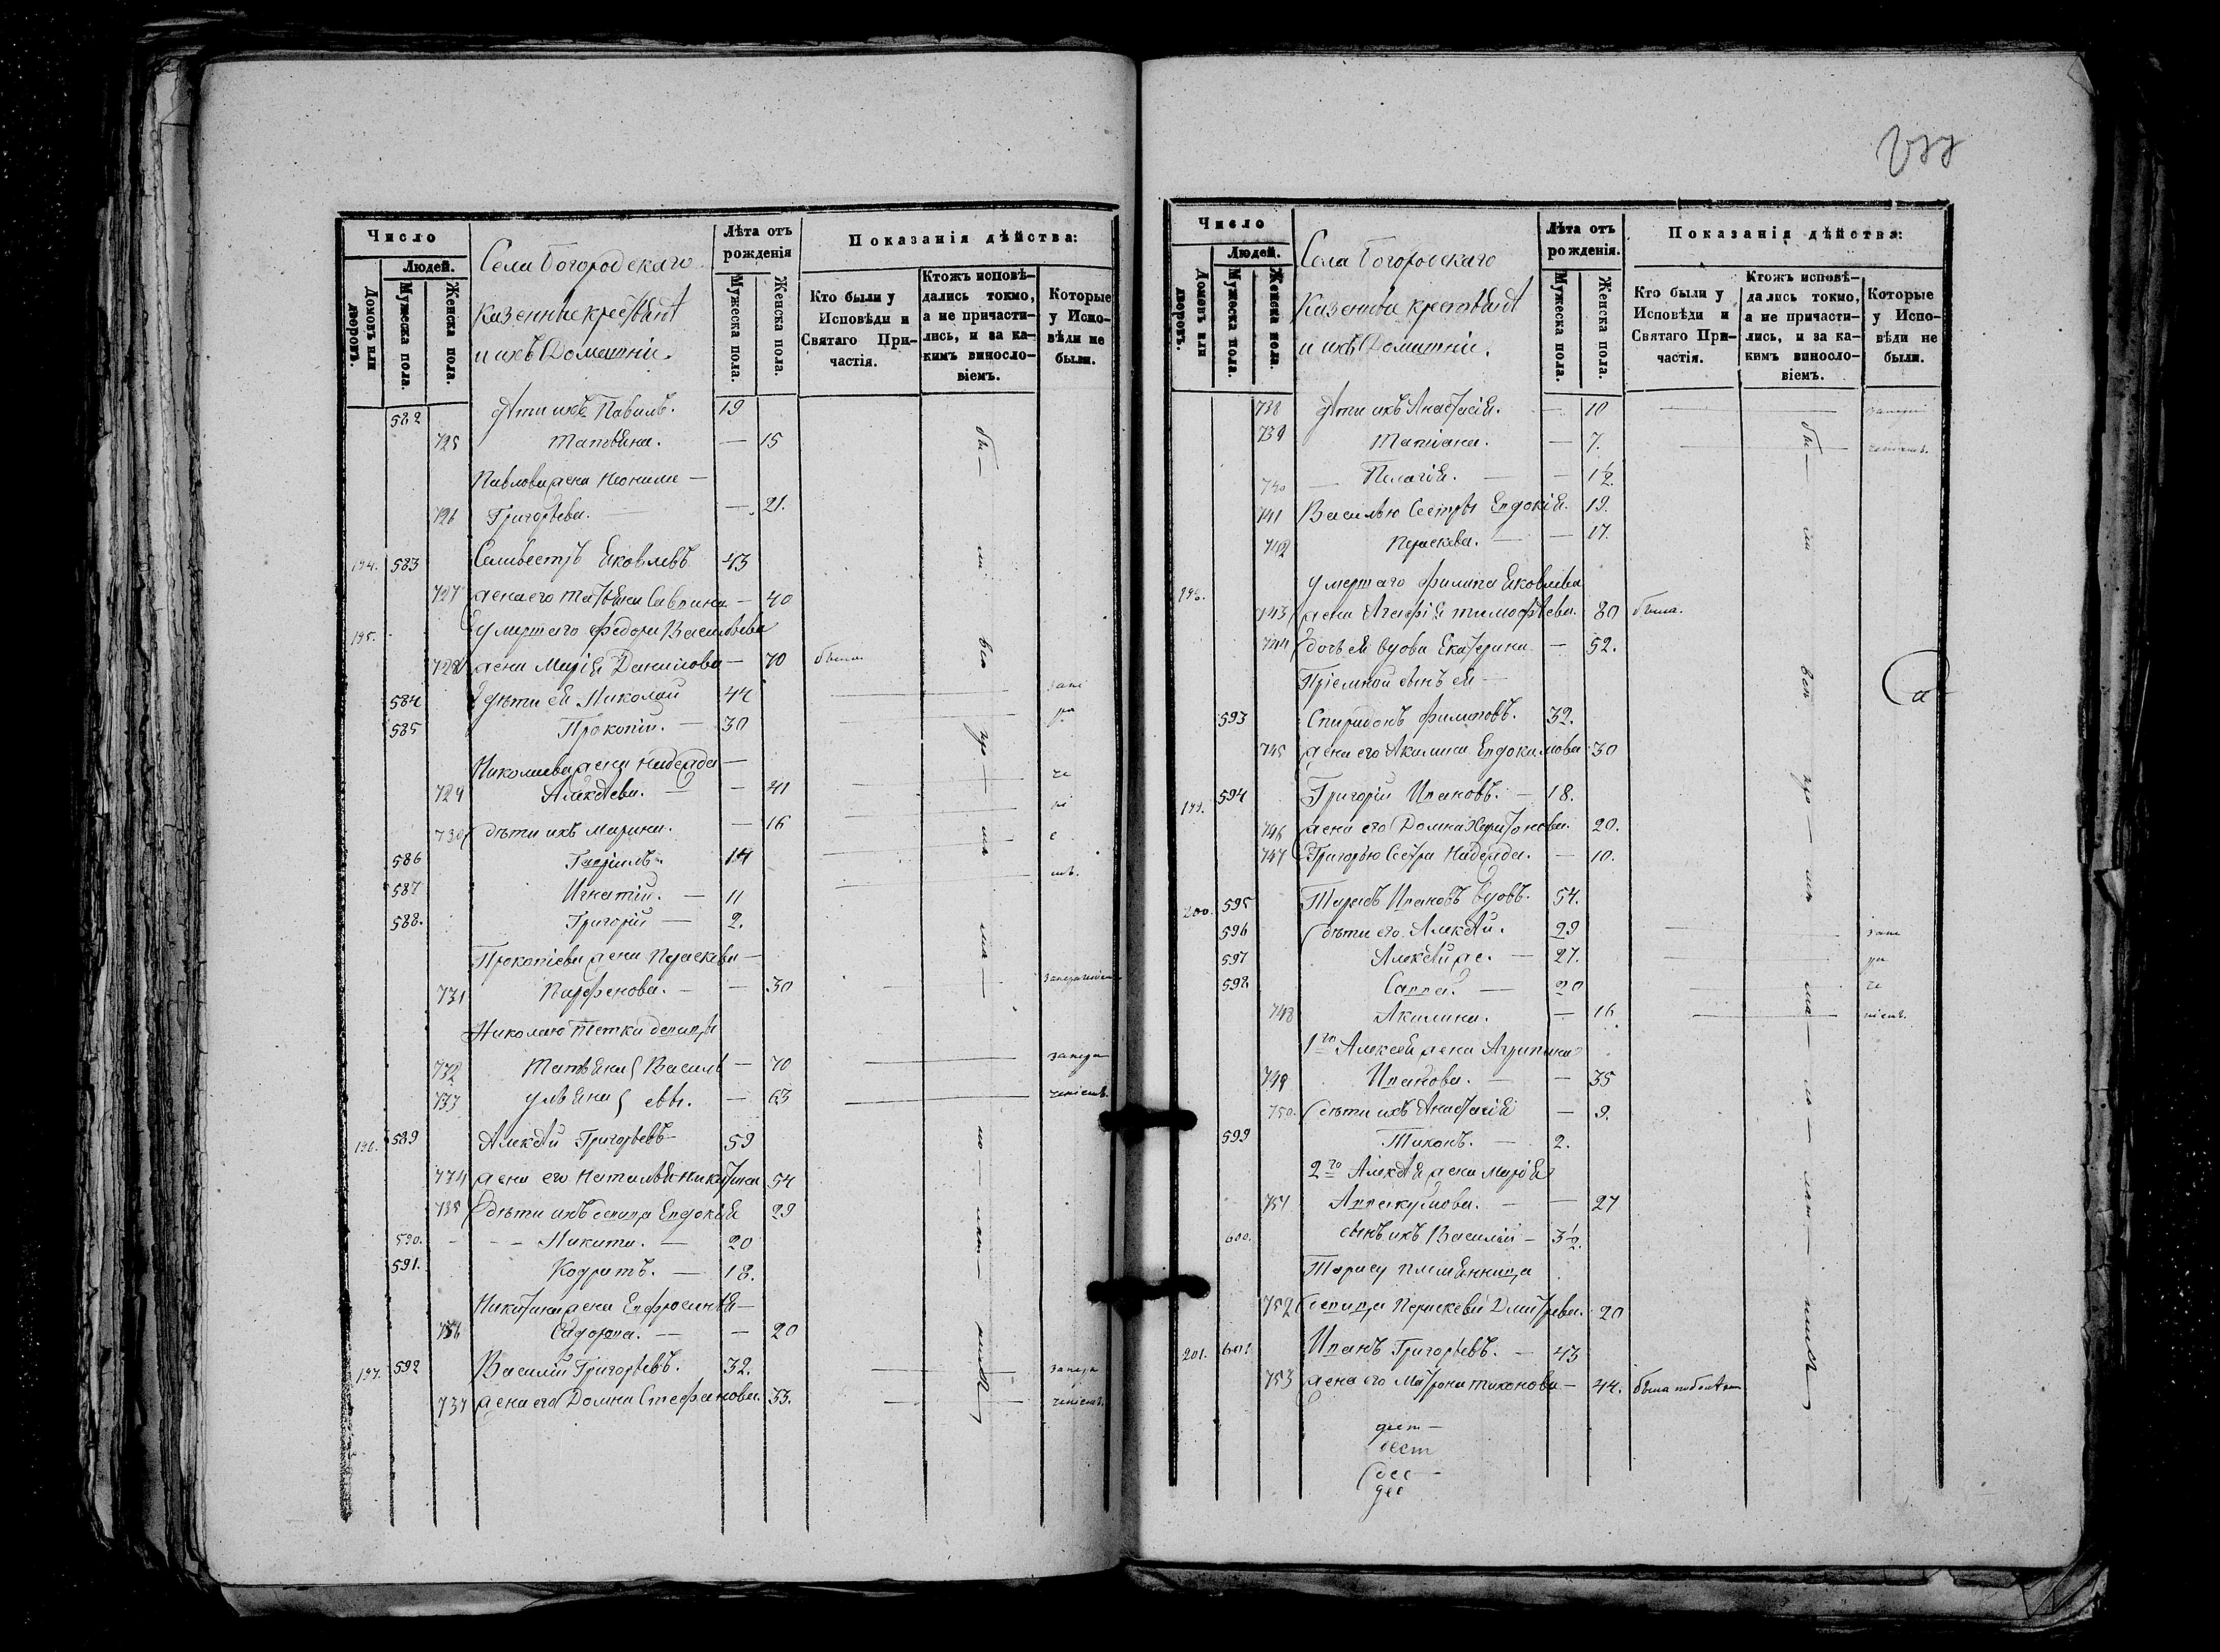 Число
Людей.
Домовъ или дворовъ.
Мужеска пола.
Женска пола.
Села Богородскаго
казенные крестьяне
и ихъ Домашніи.
Лѣта отъ рожденія
Мужеска пола.
Женска пола.
Показанія дѣйства:
Кто были у Исповѣди и Святаго Причастія.
Ктожъ исповѣдались токмо, а не причастились, и за какимъ винословіемъ.
Которые у Исповѣди не были.
582 дѣти ихъ Павилъ. 19
725 Татьяна. — 15
Павлова жена
726 Григорьева. — 21.
194. 583 Селивестръ Яковлевъ 43
727 жена его Татьяна Саввина — 40
195. умершаго Федора Васильева
728 жена Марія Данилова — 70 была.
584 дѣти ея Николай 44
585 Прокопій. — 30
Николаева жена Надежда —
729 Алексѣева. — — 41
730 дѣти ихъ Марина. — 16
586 Гавріилъ. 14
587 Игнатій. — 11
588. Григорій — 2.
Прокопіева жена Параскева —
731 Парфенова. — — 30
Николаю тетки девицы
732 Татьяна Василь — 70
733 Ульяна евы. — 63
196. 589 Алексѣй Григорьевъ 59
734 жена его Наталья Никитина 54
735 дѣти ихъ девица Евдокія 29
590. — Никита. — 20
591. Кодратъ. — 18.
Никитина жена Евфросинія —
736 Сидорова. — — 20
197. 592 Василій Григорьевъ. 32.
737 жена его Домна Стефанова. 33.
Число
Людей.
Домовъ или дворовъ.
Мужеска пола.
Женска пола.
Села Богородскаго
казенные крестьяне
и ихъ Домашніи.
Лѣта отъ рожденія.
Мужеска пола.
Женска пола.
Показанія дѣйства:
Кто были у Исповѣди и Святаго Причастія.
Ктожъ исповѣдались токмо, а не причастились, и за какимъ винословіемъ.
Которые у Исповѣди не были.
738 дѣти ихъ Анастасія. — 10
739 Татіана. — 7.
740 — Пелагія. — — 1½
741 Василью сестры Евдокія. 19.
742 Параскева. — — 17.
198. умершаго Филипа Яковлева
743 жена Агафія Тимофѣева. 80 была.
744 дочь ея вдова Екатерина — 52.
Пріемной сынъ ея —
593 Спиридонъ Филиповъ. 32.
745 жена его Акилина Евдокимова 30
199. 594 Григорій Ивановъ. — 18.
746 жена его Домна Харитонова. 20.
747 Григорью сестра Надежда. — 10.
200. 595 Тарасъ Ивановъ вдовъ. 54.
596 дѣти его Алексѣй. 29
597 Алексѣй же. — 27.
598 Савва. — 20
748 Акилина. — 16
1го Алексея жена Агрипина
749 Иванова. — — 35
750. дѣти ихъ Анастасія — 9.
599 Тихонъ. — 2.
2го Алексѣя жена Марія
751 Аввакумова. — — 27
600. сынъ ихъ Василій — 3½.
Тарасу племянница
752 девица Параскева Дмитрева. 20
201. 601 Иванъ Григорьевъ. — 43
753 жена его Матрона Тихонова — 44.